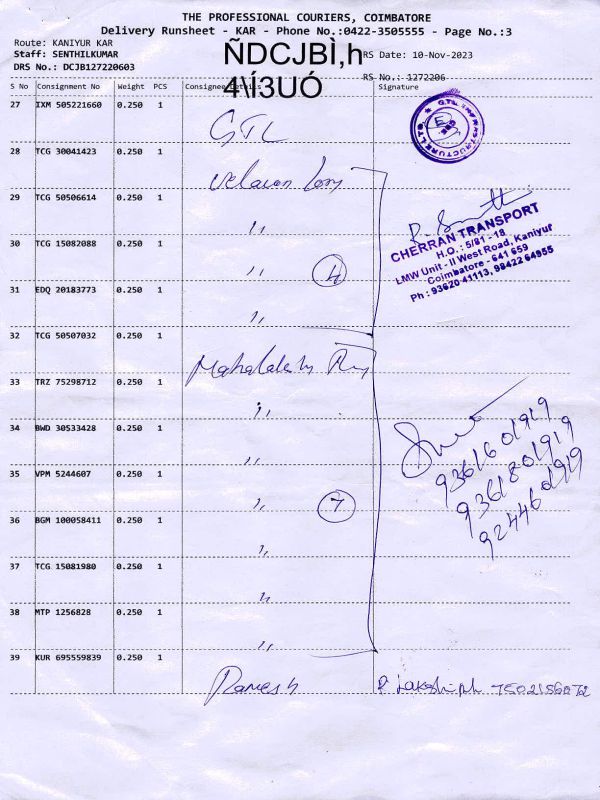 THE PROFESSIONAL COURIERS, COIMBATORE
Delivery Runsheet - KAR - Phone No.:0422-3505555 - Page No.:3
Route: KANIYUR KAR
Staff: SENTHILKUMAR
DRS No.: DCJB127220603
ÑDCJBÌ,h
4\Í3UÓ
RS Date: 10-Nov-2023
RS No.: 1272206
S No Consignment No Weight PCS Consignee Details Signature
27 IXM 505221660 0.250 1
GTL
G.T.L. INFRASTRUCTURE LTD.
28 TCG 30041423 0.250 1
29 TCG 50506614 0.250 1
"
30 TCG 15082088 0.250 1
" 4
CHERRAN TRANSPORT
H.O. : 5/81 - 18
LMW Unit - II West Road, Kaniyur
Coimbatore - 641 659
Ph : 93620 41113, 98422 64955
31 EDQ 20183773 0.250 1
"
32 TCG 50507032 0.250 1
33 TRZ 75298712 0.250 1
"
34 BWD 30533428 0.250 1
"
9361601919
9361801919
9244601919
35 VPM 5244607 0.250 1
" 7
36 BGM 100058411 0.250 1
"
37 TCG 15081980 0.250 1
"
38 MTP 1256828 0.250 1
"
39 KUR 695559839 0.250 1
Ramesh